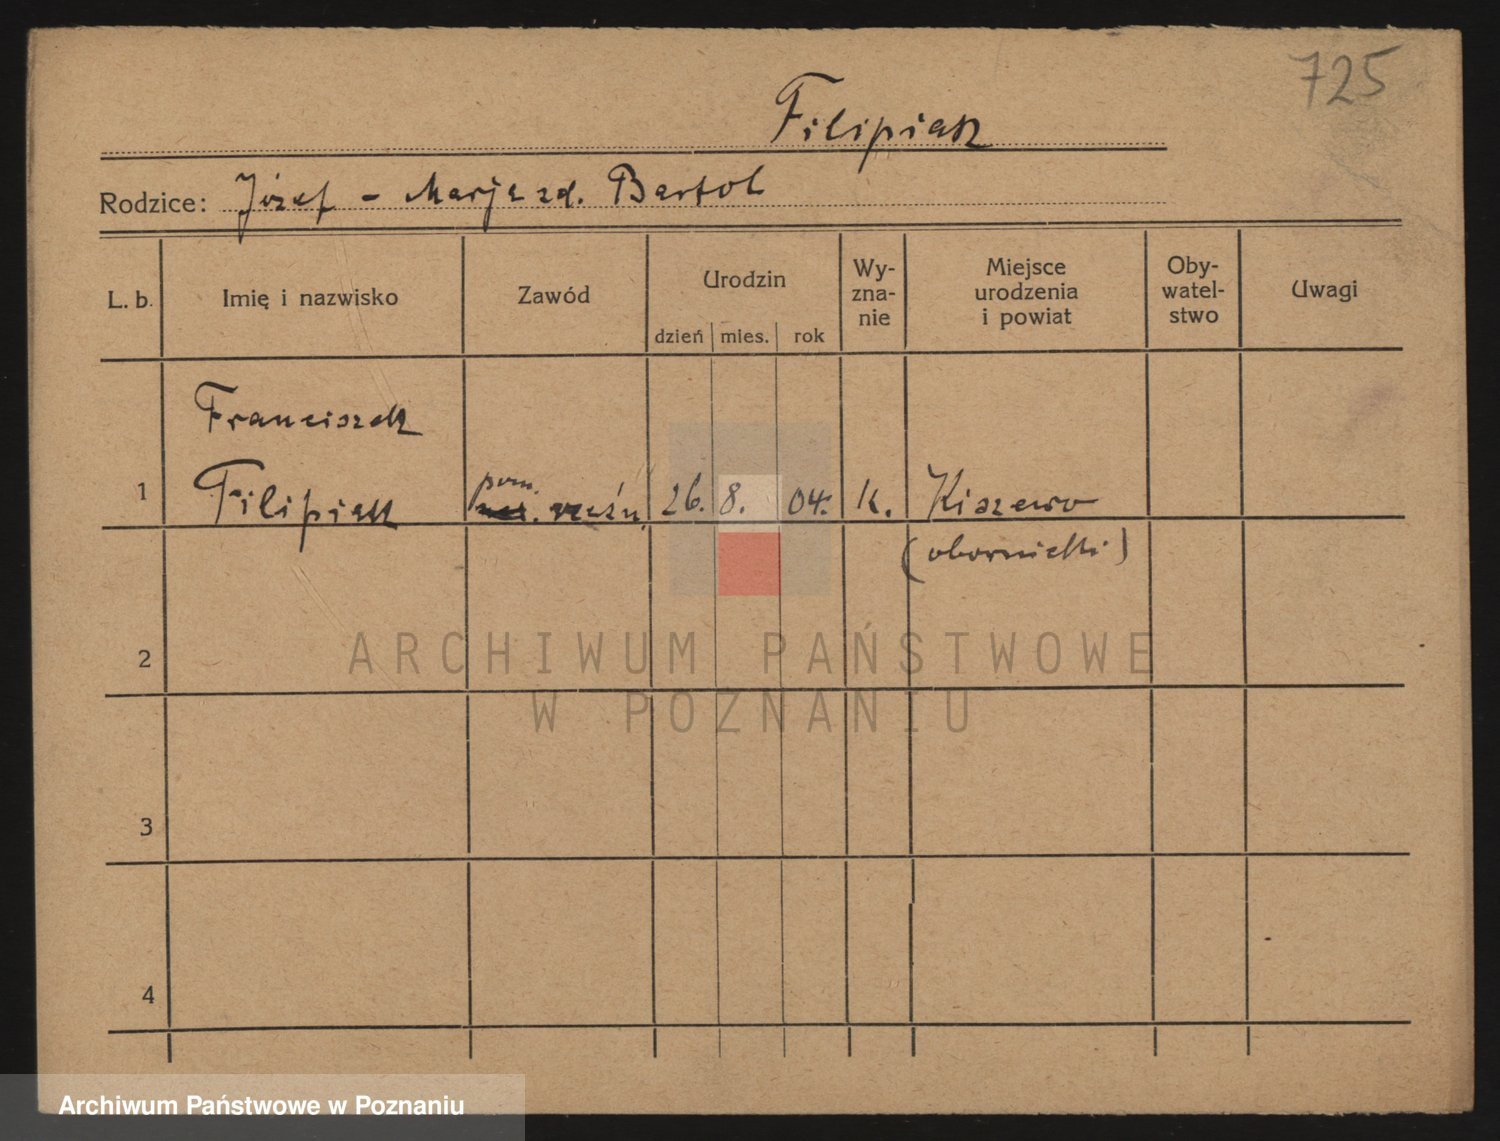 725
Filipiak
Rodzice: Józef - Marja zd. Bartol
L. b. Imię i nazwisko Zawód Urodzin dzień mies. rok Wy-zna-nie Miejsce urodzenia i powiat Oby-watel-stwo Uwagi
Franciszek
1 Filipiak pom. rzeźn. 26. 8. 04. k. Kiszewo
(obornicki)
2
3
4
ARCHIWUM PAŃSTWOWE
W POZNANIU
Archiwum Państwowe w Poznaniu